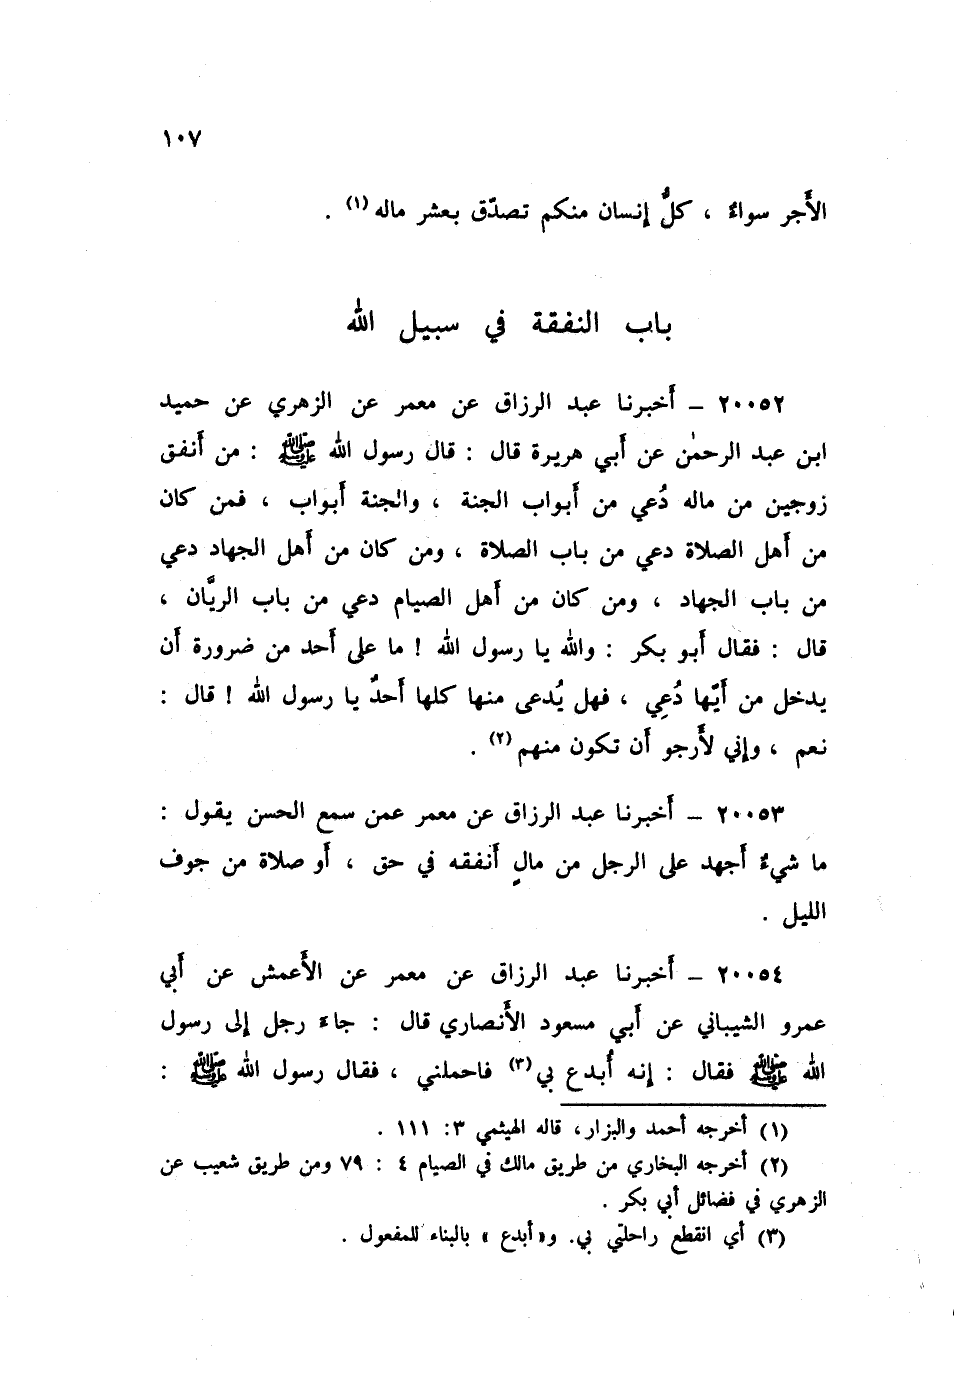 ١٠٧
الأَجر سواءٌ ، كلُّ إنسان منكم تصدّق بعشر ماله (١) .
باب النفقة في سبيل الله
٢٠٠٥٢ – أَخبرنا عبد الرزاق عن معمر عن الزهري عن حميد
ابن عبد الرحمٰن عن أَبي هريرة قال : قال رسول الله ﷺ : من أَنفق
زوجين من ماله دُعي من أَبواب الجنة ، والجنة أَبواب ، فمن كان
من أَهل الصلاة دعي من باب الصلاة ، ومن كان من أَهل الجهاد دعي
من باب الجهاد ، ومن كان من أَهل الصيام دعي من باب الريَّان ،
قال : فقال أَبو بكر : والله يا رسول الله ! ما على أَحد من ضرورة أَن
يدخل من أَيّها دُعِي ، فهل يُدعى منها كلها أَحدٌ يا رسول الله ! قال :
نعم ، وإني لأَرجو أَن تكون منهم (٢) .
٢٠٠٥٣ – أَخبرنا عبد الرزاق عن معمر عمن سمع الحسن يقول :
ما شيءٌ أَجهد على الرجل من مالٍ أَنفقه في حق ، أَو صلاة من جوف
الليل .
٢٠٠٥٤ – أَخبرنا عبد الرزاق عن معمر عن الأَعمش عن أَبي
عمرو الشيباني عن أَبي مسعود الأَنصاري قال : جاءَ رجل إلى رسول
الله ﷺ فقال : إنه أُبدع بي (٣) فاحملني ، فقال رسول الله ﷺ :
(١) أخرجه أحمد والبزار، قاله الهيثمي ٣: ١١١ .
(٢) أخرجه البخاري من طريق مالك في الصيام ٤ : ٧٩ ومن طريق شعيب عن
الزهري في فضائل أبي بكر .
(٣) أي انقطع راحلتي بي. و«أبدع» بالبناء للمفعول .